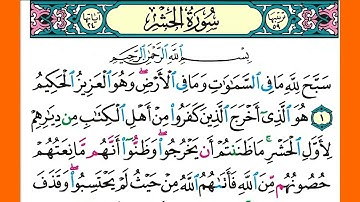 سُورَةُ الْحَشْرِ
بِسْمِ اللَّهِ الرَّحْمَٰنِ الرَّحِيمِ
سَبَّحَ لِلَّهِ مَا فِي السَّمَاوَاتِ وَمَا فِي الْأَرْضِ وَهُوَ الْعَزِيزُ الْحَكِيمُ
١ هُوَ الَّذِي أَخْرَجَ الَّذِينَ كَفَرُوا مِنْ أَهْلِ الْكِتَابِ مِن دِيَارِهِمْ
لِأَوَّلِ الْحَشْرِ مَا ظَنَنتُمْ أَن يَخْرُجُوا وَظَنُّوا أَنَّهُم مَّانِعَتُهُمْ
حُصُونُهُم مِّنَ اللَّهِ فَأَتَاهُمُ اللَّهُ مِنْ حَيْثُ لَمْ يَحْتَسِبُوا وَقَذَفَ